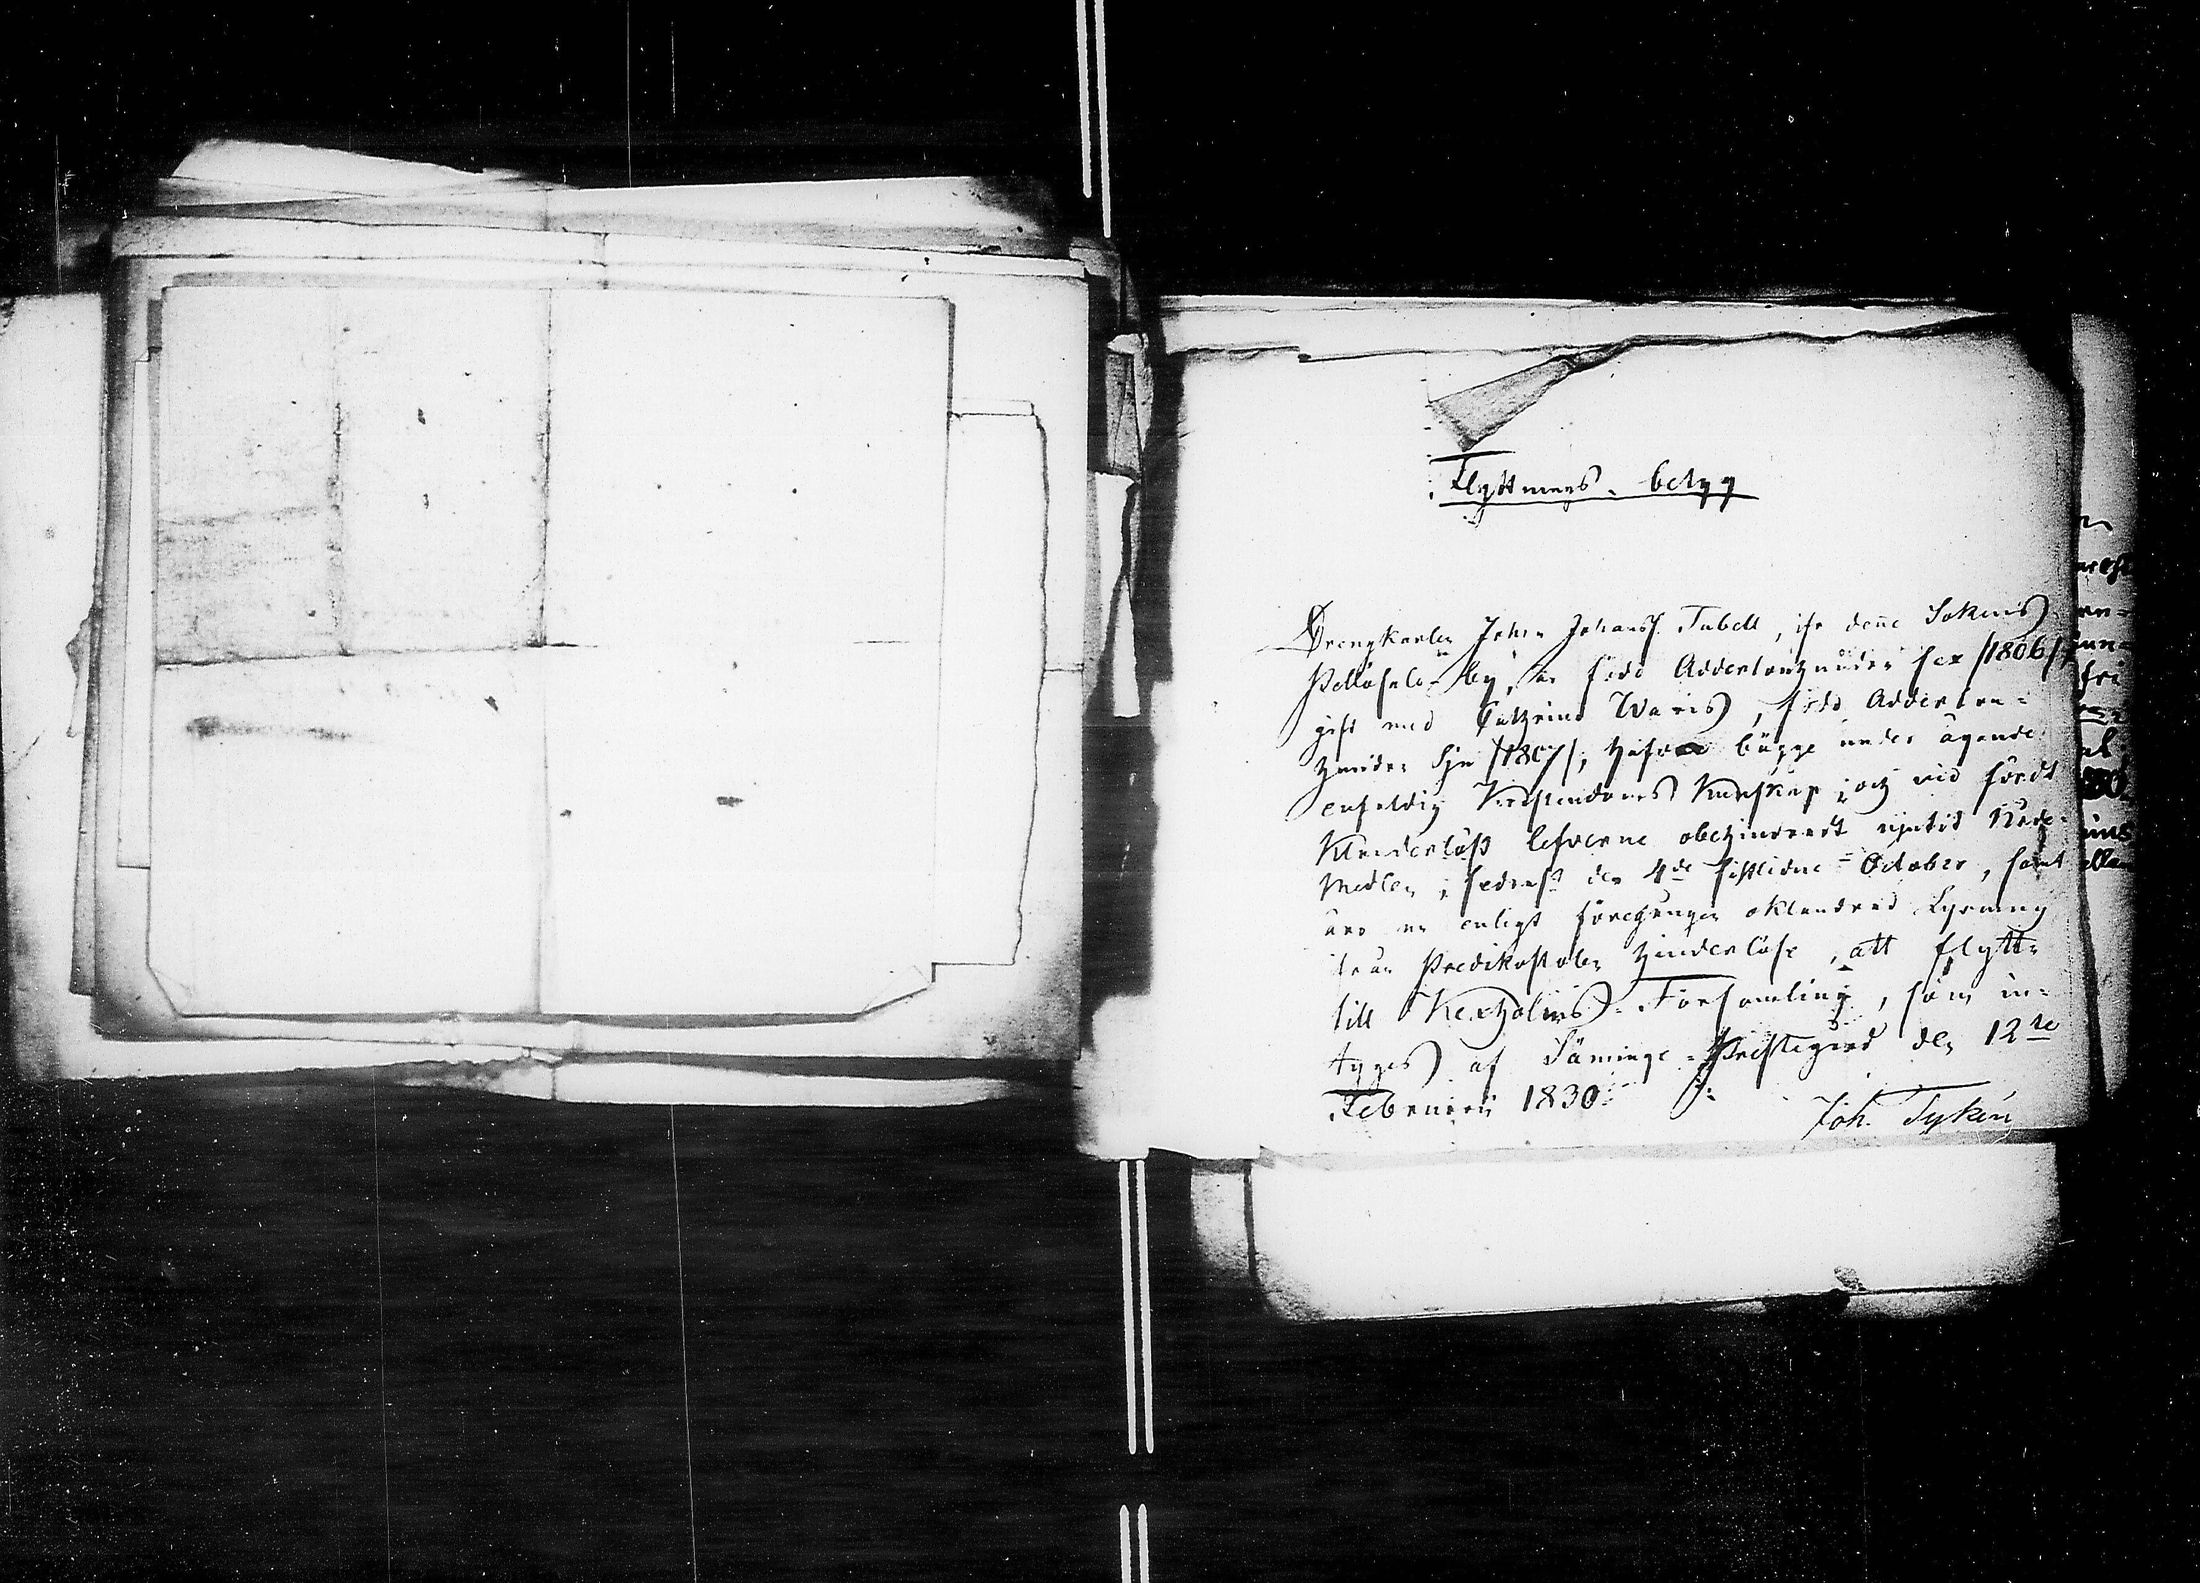 Flyttnings-betyg
Drengkarlen Johan Johansf. Tabell, ifr. denne Sokens
Pellosnlo by, är född Adderton hundr. sex /1806/,
gift med Cathrina Waris, född Adderton=
hundr. sju /1807/; hafva begge under ägande
enfaldig Kristendoms Kunskap, och vid fördt
Klanderlöst lefverne obehindradt njutit Nåde=
Medlen, sednast den 4de sistlidne October, samt
äro nu enligt föregången oklandrad Lysning
från Predikostolen hinderlöse, att flytta
till Kexholms-Församling, som in=
tygas af Säminge-Prestegård den 12te
Februari 1830.
Joh. Tykén